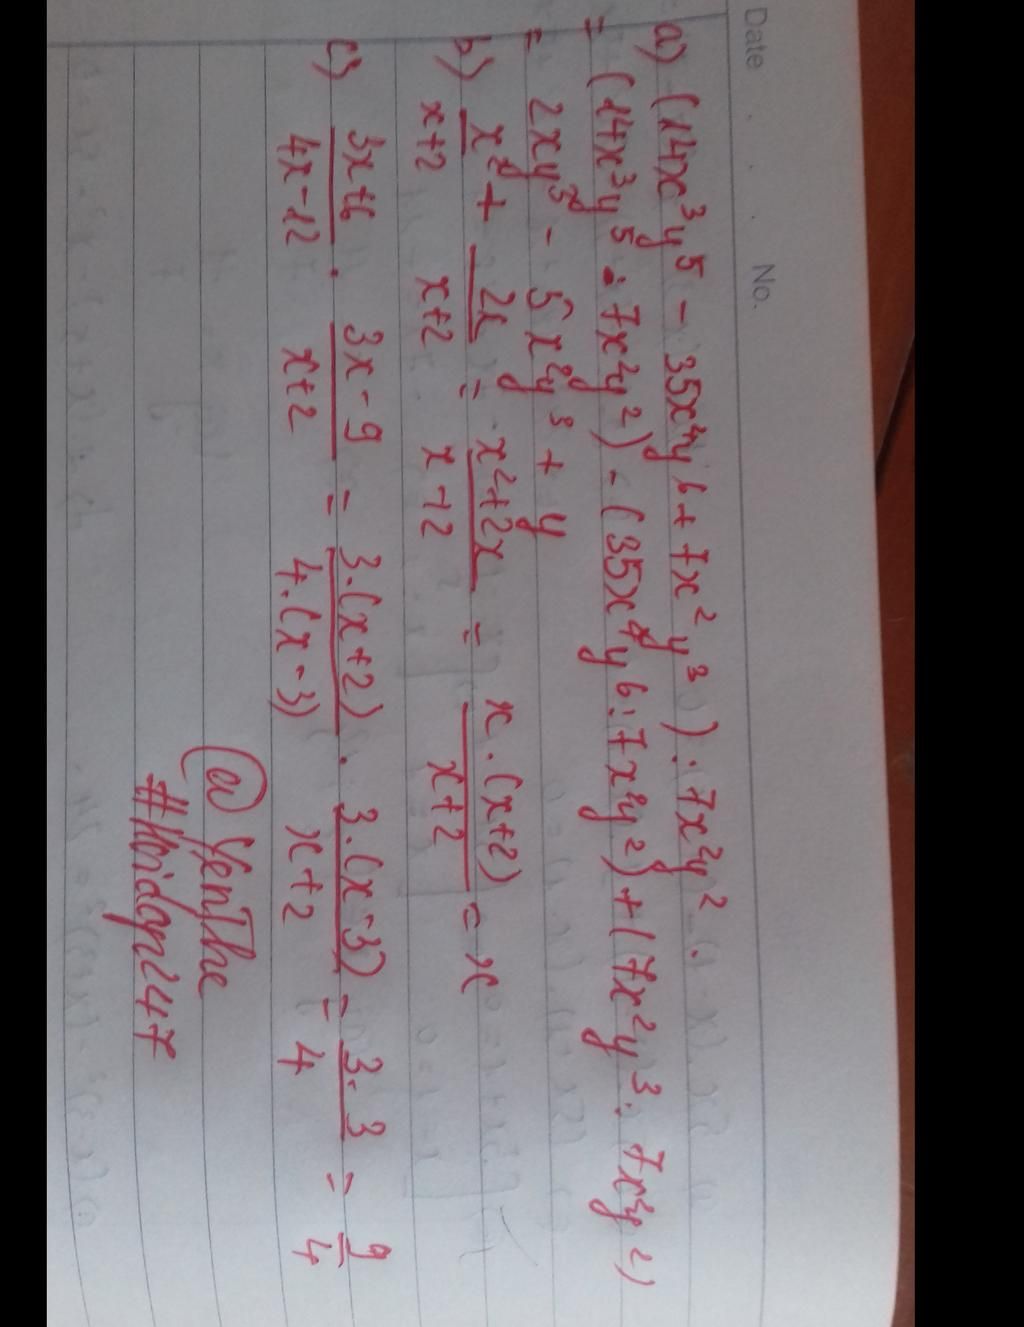 Date No.
a) (14x³y⁵ - 35x⁴y⁶ + 7x²y³) : 7x²y².
= (14x³y⁵ : 7x²y²) - (35x⁴y⁶ : 7x²y²) + (7x²y³ : 7x²y²)
= 2xy³ - 5x²y³ + y
b) x²/x+2 + 2x/x+2 = x²+2x/x+2 = x.(x+2)/x+2 = x
c) 3x+6/4x-12 . 3x-9/x+2 = 3.(x+2)/4.(x-3) . 3.(x-3)/x+2 = 3.3/4 = 9/4
@YenThe
#Hoidap247